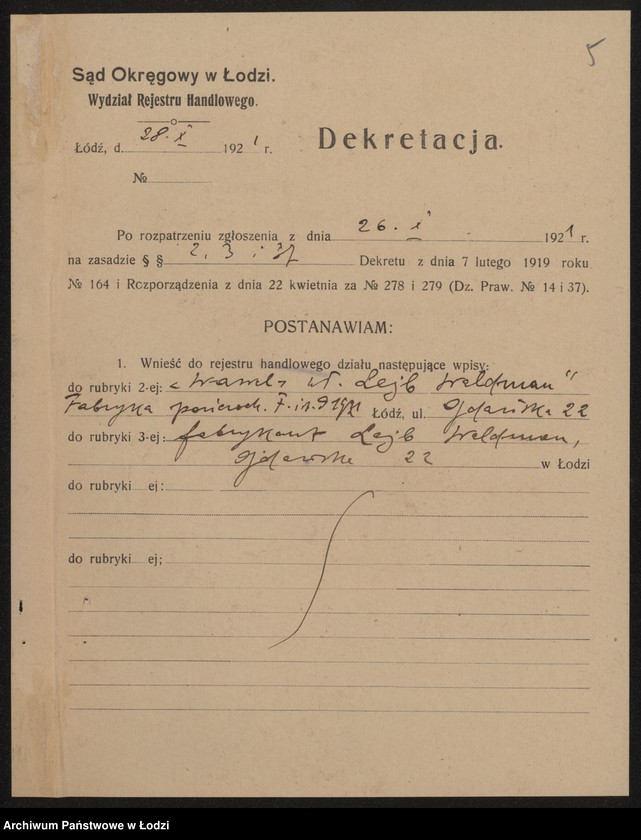 5
Sąd Okręgowy w Łodzi.
Wydział Rejestru Handlowego.
Łódź, d. 28. X 1921 r.
Dekretacja.
№
Po rozpatrzeniu zgłoszenia z dnia 26. X 1921 r.
na zasadzie § § 2, 3 i 37 Dekretu z dnia 7 lutego 1919 roku
№ 164 i Rozporządzenia z dnia 22 kwietnia za № 278 i 279 (Dz. Praw. № 14 i 37).
POSTANAWIAM:
1. Wnieść do rejestru handlowego działu następujące wpisy:
do rubryki 2-ej: wł. Lejb Weldman"
Fabryka pończoch. Łódź, ul. Gdańska 22
do rubryki 3-ej: fabrykant Lejb Weldman,
Gdańska 22 w Łodzi
do rubryki ej:
do rubryki ej;
Archiwum Państwowe w Łodzi